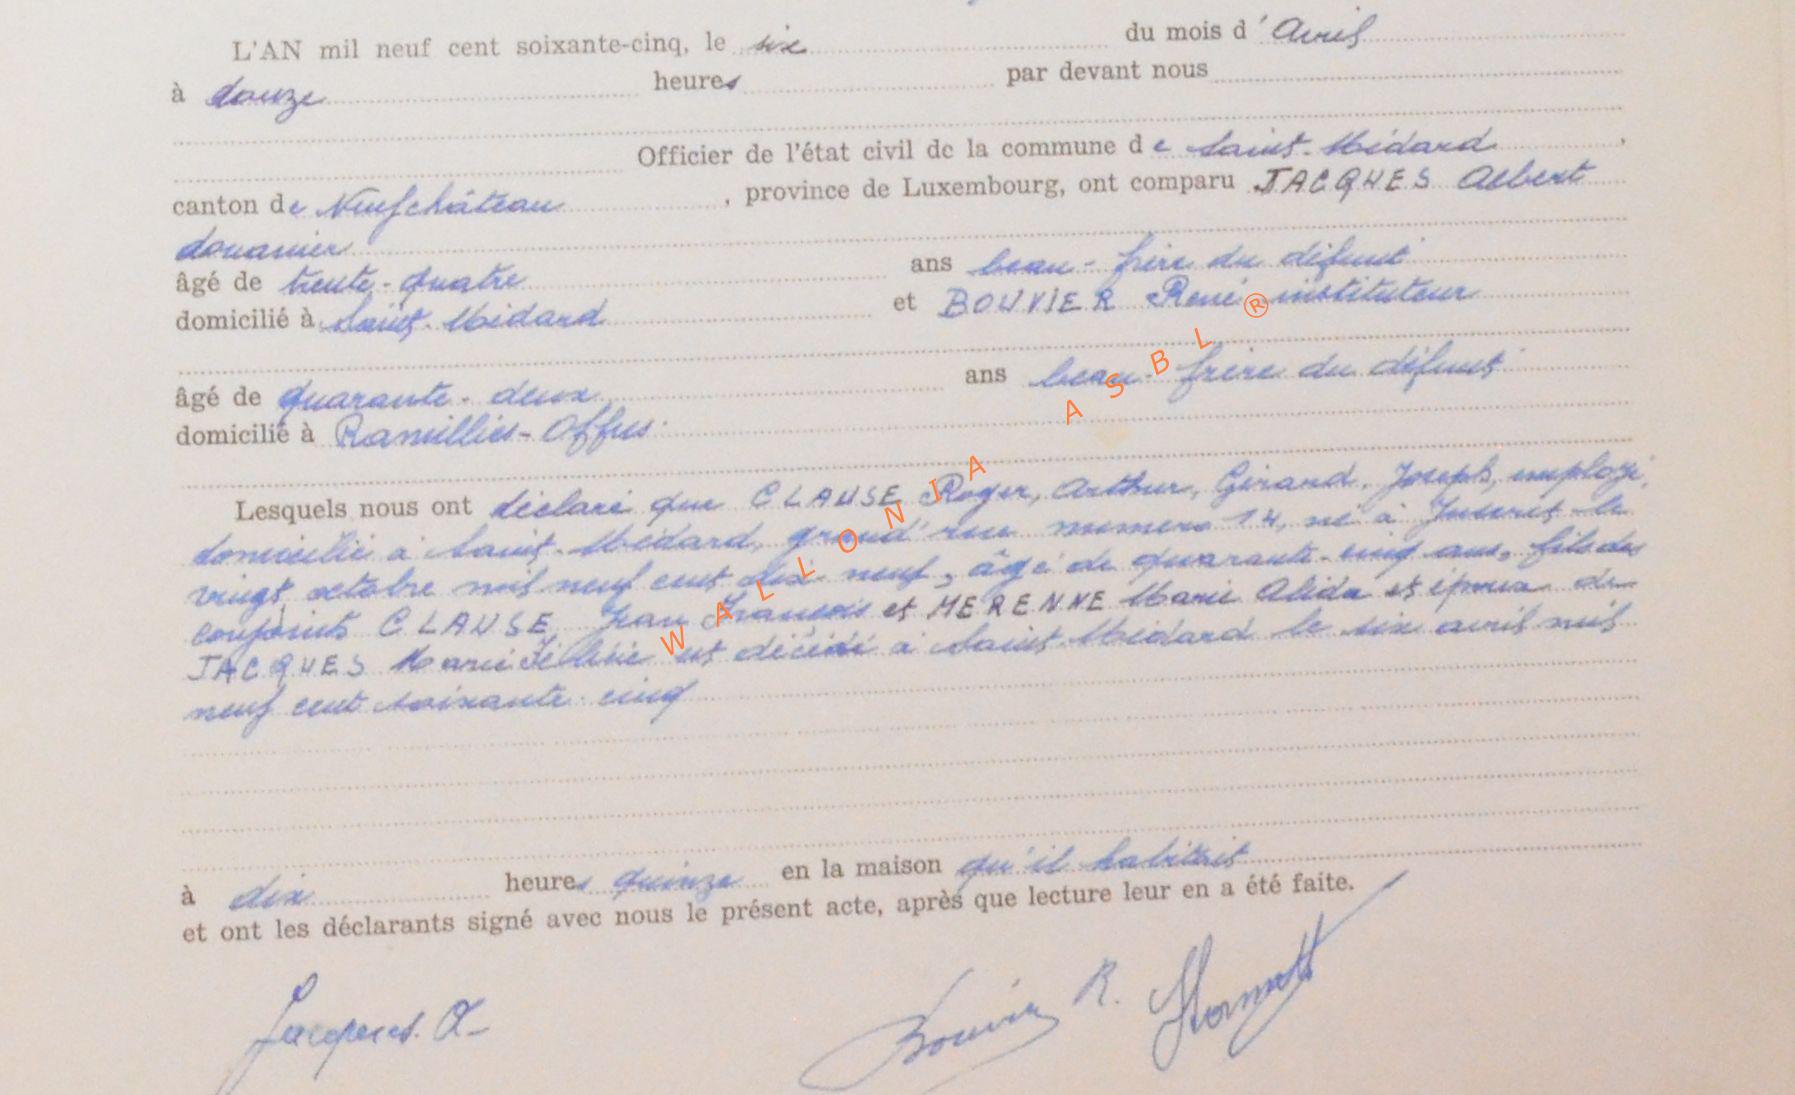 L'AN mil neuf cent soixante-cinq, le six du mois d'Avril
à douze heures par devant nous
Officier de l'état civil de la commune de Saint-Médard,
canton de Neufchâteau, province de Luxembourg, ont comparu JACQUES Albert
douanier
âgé de trente-quatre ans beau-frère du défunt
domicilié à Saint-Médard et BOUVIER René instituteur
âgé de quarante-deux ans beau-frère du défunt
domicilié à Ramillies-Offus.
Lesquels nous ont déclaré que CLAUSE Roger, Arthur, Gérard, Joseph, employé,
domicilié à Saint-Médard, grand'rue numéro 14, né à Juseret le
vingt octobre mil neuf cent dix-neuf, âgé de quarante-cinq ans, fils des
conjoints CLAUSE Jean François et MERENNE Marie Alida et époux de
JACQUES Marie est décédé à Saint-Médard le six avril mil
neuf cent soixante-cinq
à dix heures quinze en la maison qu'il habitait
et ont les déclarants signé avec nous le présent acte, après que lecture leur en a été faite.
Jacques. A
Bouvier R.
WALLONIA ASBL ®